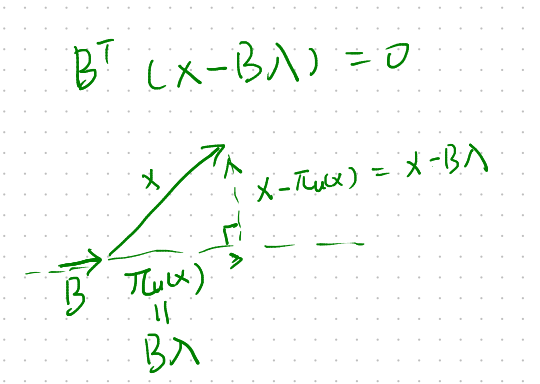 Bᵀ (x - Bλ) = 0
x
x - πᵤ(x) = x - Bλ
B
πᵤ(x)
=
Bλ